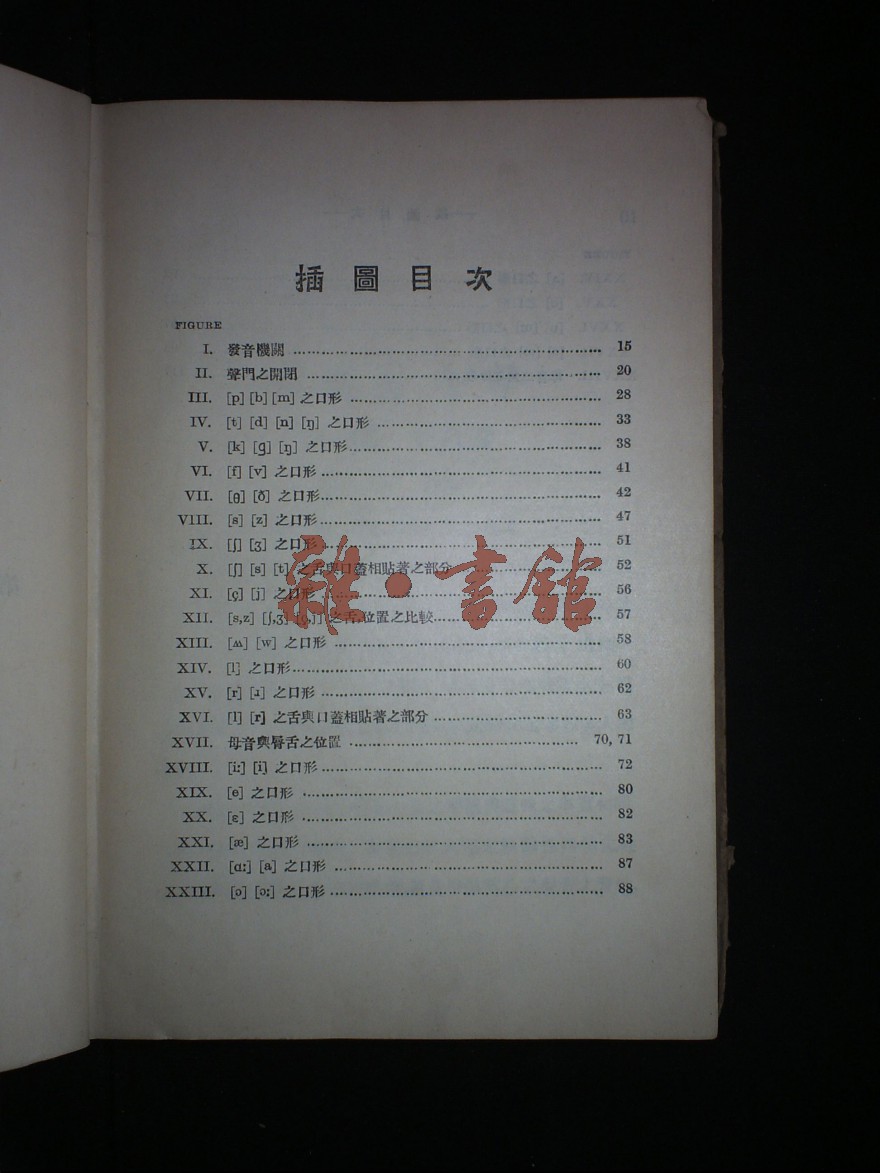 插圖目次
FIGURE
I. 發音機關 ........ 15
II. 聲門之開閉 ........ 20
III. [p] [b] [m] 之口形 ........ 28
IV. [t] [d] [n] [ŋ] 之口形 ........ 33
V. [k] [g] [ŋ] 之口形 ........ 38
VI. [f] [v] 之口形 ........ 41
VII. [θ] [ð] 之口形 ........ 42
VIII. [s] [z] 之口形 ........ 47
IX. [ʃ] [ʒ] 之口形 ........ 51
X. [ʃ] [s] [t] 之舌與口蓋相貼著之部分 ........ 52
XI. [ç] [j] 之口形 ........ 56
XII. [s,z] [ʃ,ʒ] [ç,j] 之舌位置之比較 ........ 57
XIII. [ʍ] [w] 之口形 ........ 58
XIV. [l] 之口形 ........ 60
XV. [r] [ɹ] 之口形 ........ 62
XVI. [l] [r] 之舌與口蓋相貼著之部分 ........ 63
XVII. 母音與脣舌之位置 ........ 70, 71
XVIII. [i:] [i] 之口形 ........ 72
XIX. [e] 之口形 ........ 80
XX. [ɛ] 之口形 ........ 82
XXI. [æ] 之口形 ........ 83
XXII. [ɑ:] [a] 之口形 ........ 87
XXIII. [ɔ] [ɔ:] 之口形 ........ 88
雜·書館